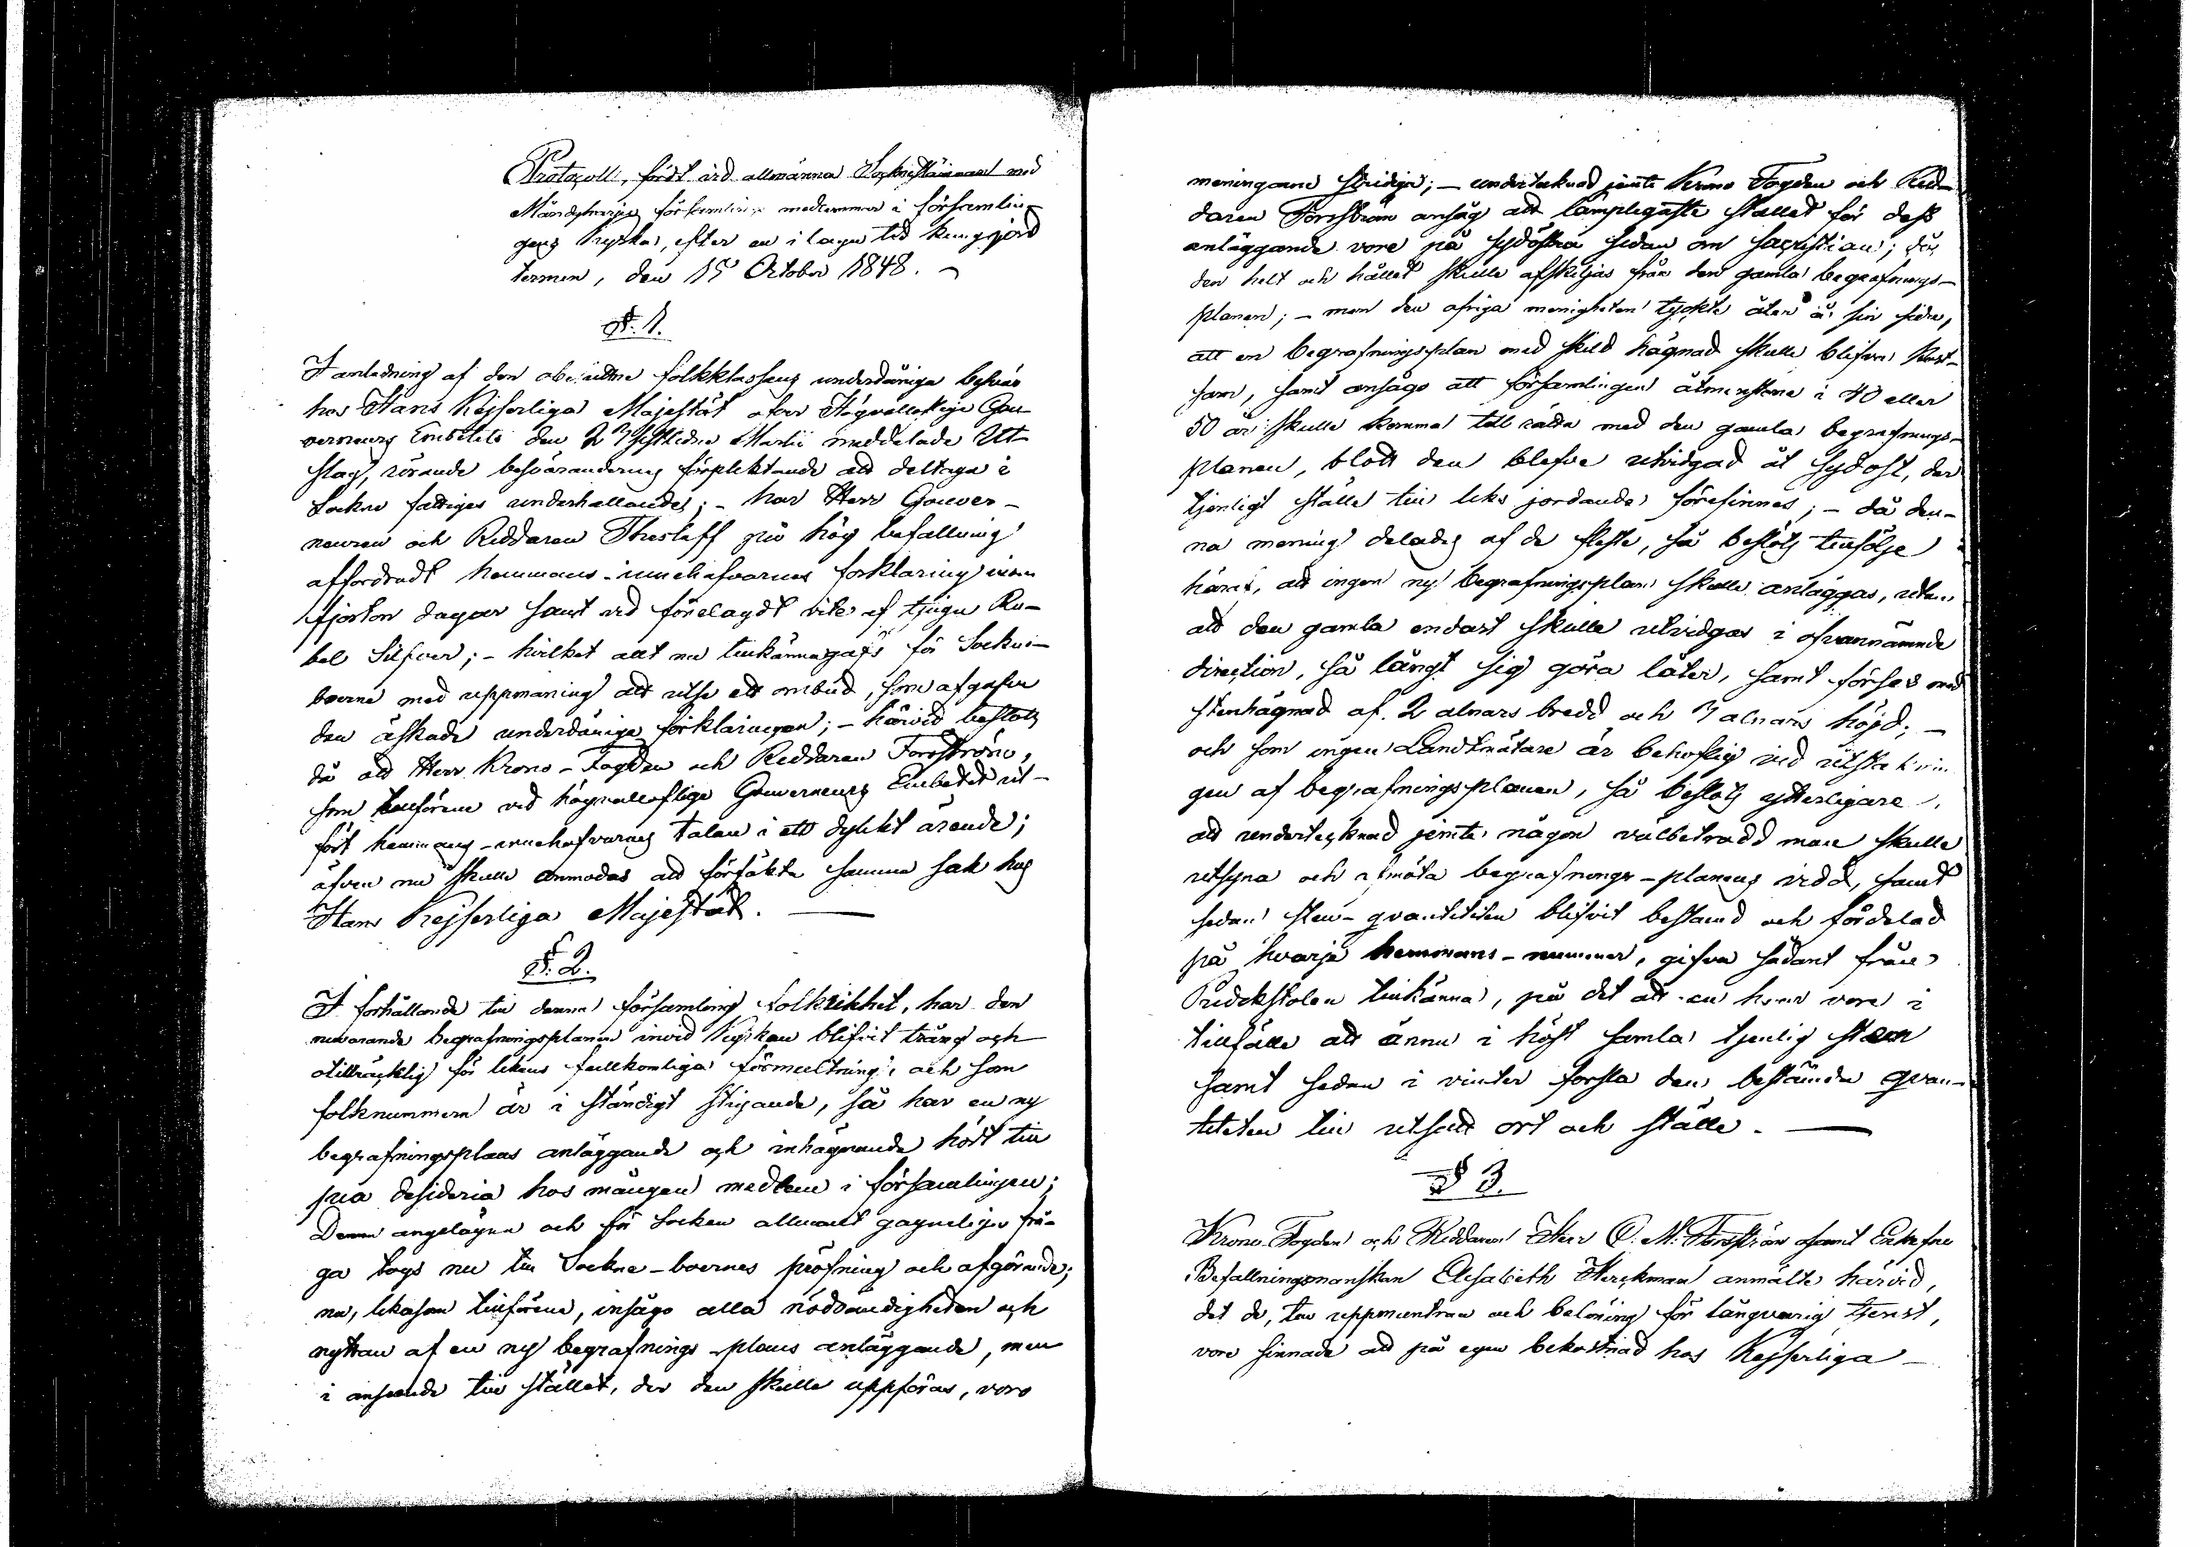 Protocoll, fördt vid allmänna Sockenstämman med
Mäntyharju församlings medlemmar i församlin-
gens Kyrka, efter en i laga tid kungjord
termin, den 15 October 1848.
§. 1.
I anledning af den obesuttne folkklassens underdåniga besvär
hos Hans Kejserliga Majestät öfver Högvällofliga Gou-
verneurs Embetets den 27 sistledne Martii meddelade Ut-
slag, rörande besvärandernes förpligtande att deltaga i
Sockne fattiges underhållande; - har Herr Gouver-
neuren och Riddaren Thesleff på hög befallning
affordradt hemmans-innehafvarnes förklaring inom
fjorton dagar samt vid förelagdt vite af tjugu Ru-
bel Silfver; - hvilket allt nu tillkännagafs för Sockne-
boerne med uppmaning att utse ett ombud, som afgåfve
den äskade underdåniga förklaringen; - härvid beslöts
då att Herr Krono-Fogden och Riddaren Forsström,
som tillförene vid högvällofliga Gouverneurs Embetet ut-
fört hemmans-innehafvarnes talan i ett dylikt ärende;
äfven nu skulle anmodas att förfäkta samma sak hos
Hans Kejserliga Majestät.
§. 2.
I förhållande till denna församlings folkrikhet, har den
nuvarande begrafningsplanen invid Kyrkan blifvit trång och
otillräcklig för likens fullkomliga förmultning; och som
folknummern är i ständigt stigande, så har en ny
begrafningsplans anläggande och inhägnande hört till
pia desideria hos mången medlem i församlingen;
Denna angelägna och för Socken allmänt gagneliga frå-
ga togs nu till Sockne-boernes pröfning och afgörande;
nu, likasom tillförene, insågo alla nödvändigheten och
nyttan af en ny begrafnings-plans anläggande, men
i anseende till stället, der den skulle uppföras, voro
meningarne stridiga; - undertecknad jemte Krono Fogden och Rid-
daren Forsström ansåg att lämpligaste stället för dess
anläggande vore på sydöstra sidan om sacristian; där
den helt och hållet skulle afskiljas från den gamla begrafnings-
planen; - men den öfriga menigheten tyckte åter å sin sida,
att en begrafningsplan med skild hägnad skulle blifva kost-
sam, samt ansågo att församlingen åtminstone i 40 eller
50 år skulle komma till rätta med den gamla begrafnings-
planen, blott den blefve utvidgad åt sydost, der
tjenligt ställe till liks jordande förefinnes; - då den-
na mening delades af de fleste, så beslöts tillfölje
häraf, att ingen ny begrafningsplan skulle anläggas, utan
att den gamla endast skulle utvidgas i ofvannämnde
direction, så långt sig göra låter, samt förses med
stenhägnad af 2 alnars bredd och 7 alnars höjd; -
och som ingen Landtmätare är behöflig vid utstaknin-
gen af begrafningsplanen, så beslöts ytterligare,
att undertecknad jemte någon välbetrodd man skulle
utsyna och afmäta begrafnings-planens vidd, samt
sedan sten-qvantiteten blifvit bestämd och fördelad
på hvarje hemmans-nummer, gifva sådant från
Predikstolen tillkänna, på det att en hvar vore i
tillfälle att ännu i höst samla tjenlig sten
samt sedan i vinter forsla den bestämda qvan-
titeten till utsatt ort och ställe.
§ 3.
Krono-Fogden och Riddaren Herr C. M. Forsström samt Enkefru
Befallningsmanskan Elisabeth Herckman anmälte härvid,
det de, till uppmuntran och belöning för långvarig tjenst,
vore sinnade att på egen bekostnad hos Kejserliga